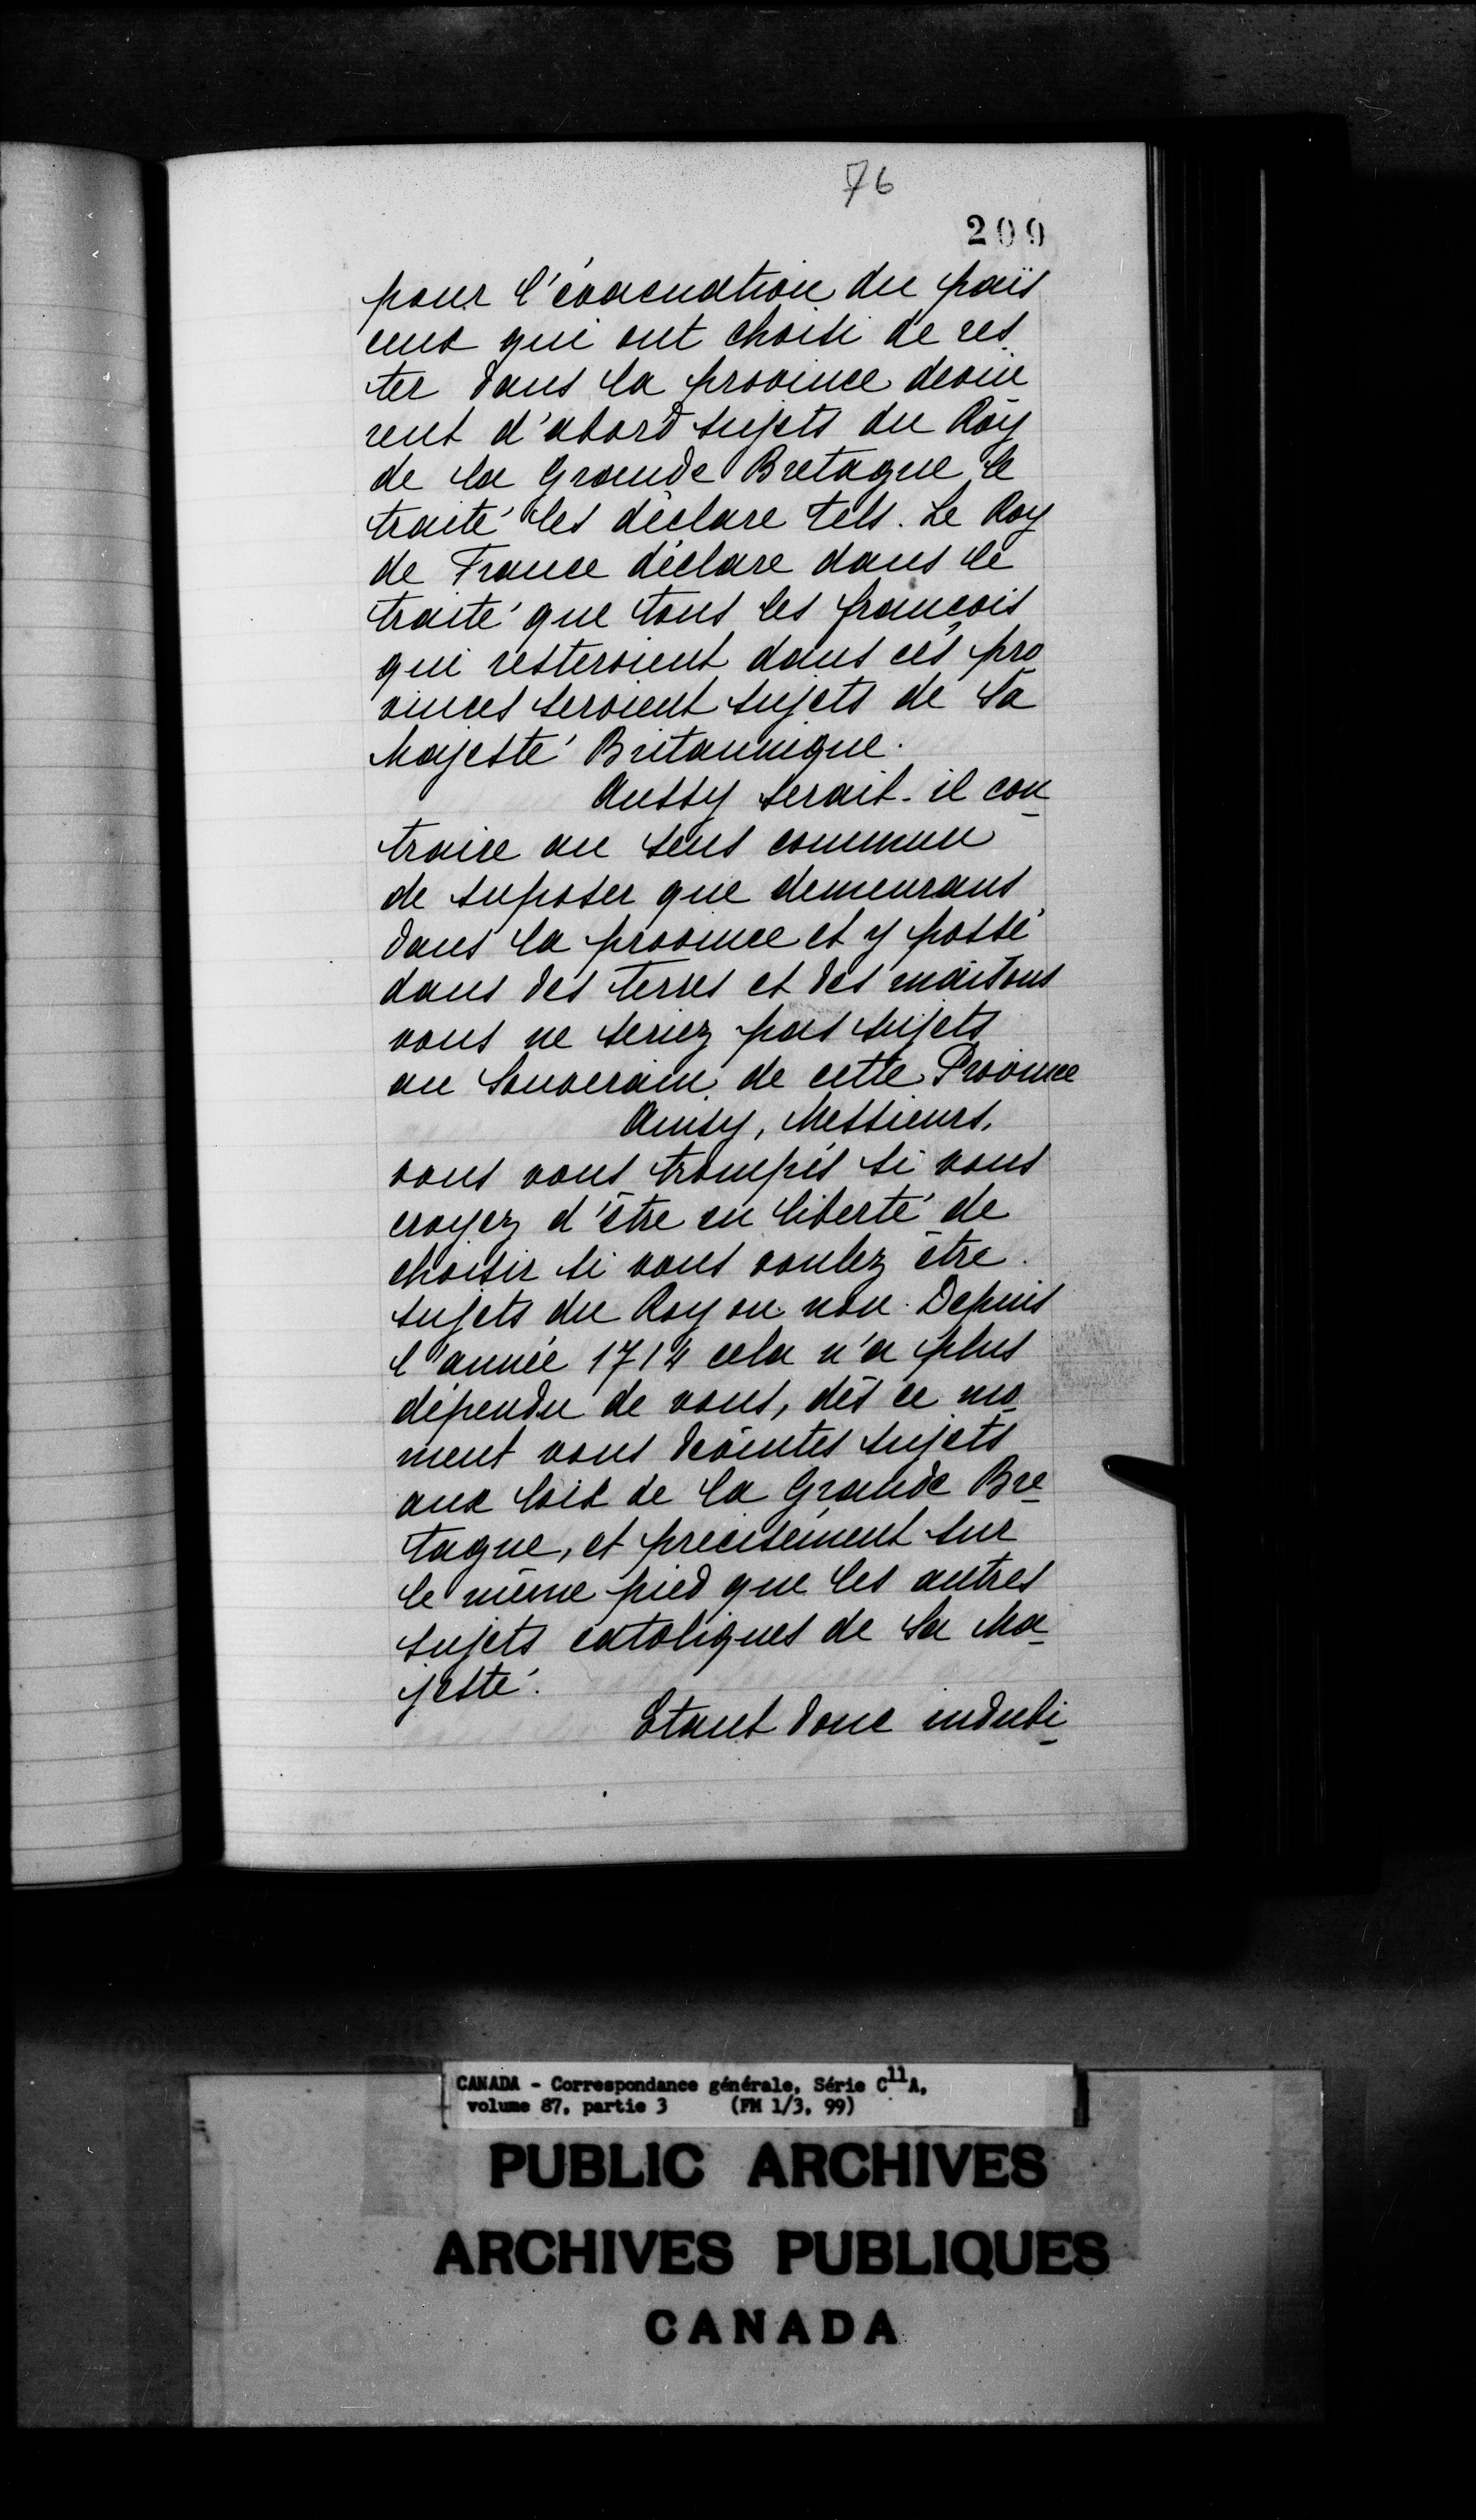 76
209
pour l'évacuation du païs
ceux qui ont choisi de res
ter dans la province devin
rent d'abord sujets du Roy
de la Grande Bretagne le
traité les déclare tels. Le Roy
de France déclare dans le
traité que tous les françois
qui resteroient dans ces pro
vinces seroient sujets de Sa
Majesté Britannique.
Aussy serait-il con
traire au sens commun
de suposer que demeurans
dans la province et y possé
dans des terres et des maisons
vous ne seriez pas sujets
au Souverain de cette Province
Ainsy, Messieurs,
vous vous trompés si vous
croyez d'être en liberté de
choisir si vous voulez être
sujets du Roy ou non. Depuis
l'année 1714 cela n'a plus
dépendu de vous, dès ce mo
ment vous devintes sujets
aux lois de la Grande Bre
tagne, et precisément sur
le même pied que les autres
sujets catoliques de Sa Ma
jesté.
Etant donc indubi
CANADA - Correspondance générale, Série C11A,
volume 87, partie 3 (FM 1/3, 99)
PUBLIC ARCHIVES
ARCHIVES PUBLIQUES
CANADA